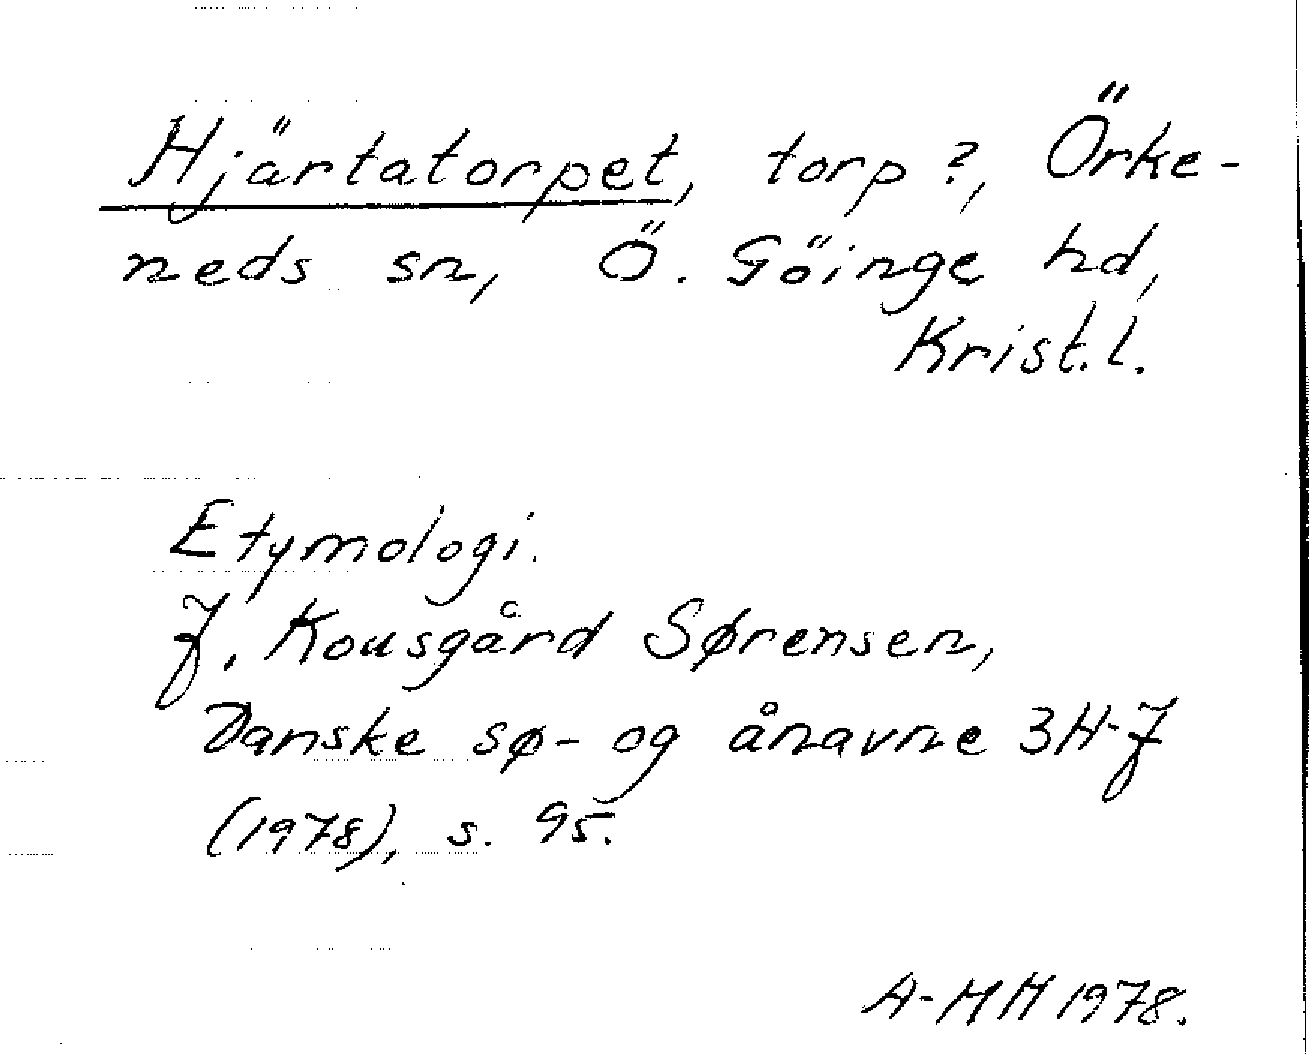 Hjärtatorpet, torp?, Örke-
neds sn, Ö. Göinge hd,
Krist.l.
Etymologi.
J. Kousgård Sørensen,
Danske sø- og ånavne 3H-J
(1978), s. 95.
A-HH 1978.